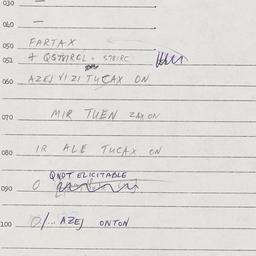 030 —
040 —
050 FARTAX
051 + QSTBIRCL + STBIRC
060 AZEJ VIZI TUCAX ON
070 MIR TUEN ZAXON
080 IR ALE TUCAX ON
QNOT ELICITABLE
090 O
100 O/... AZEJ ONTON